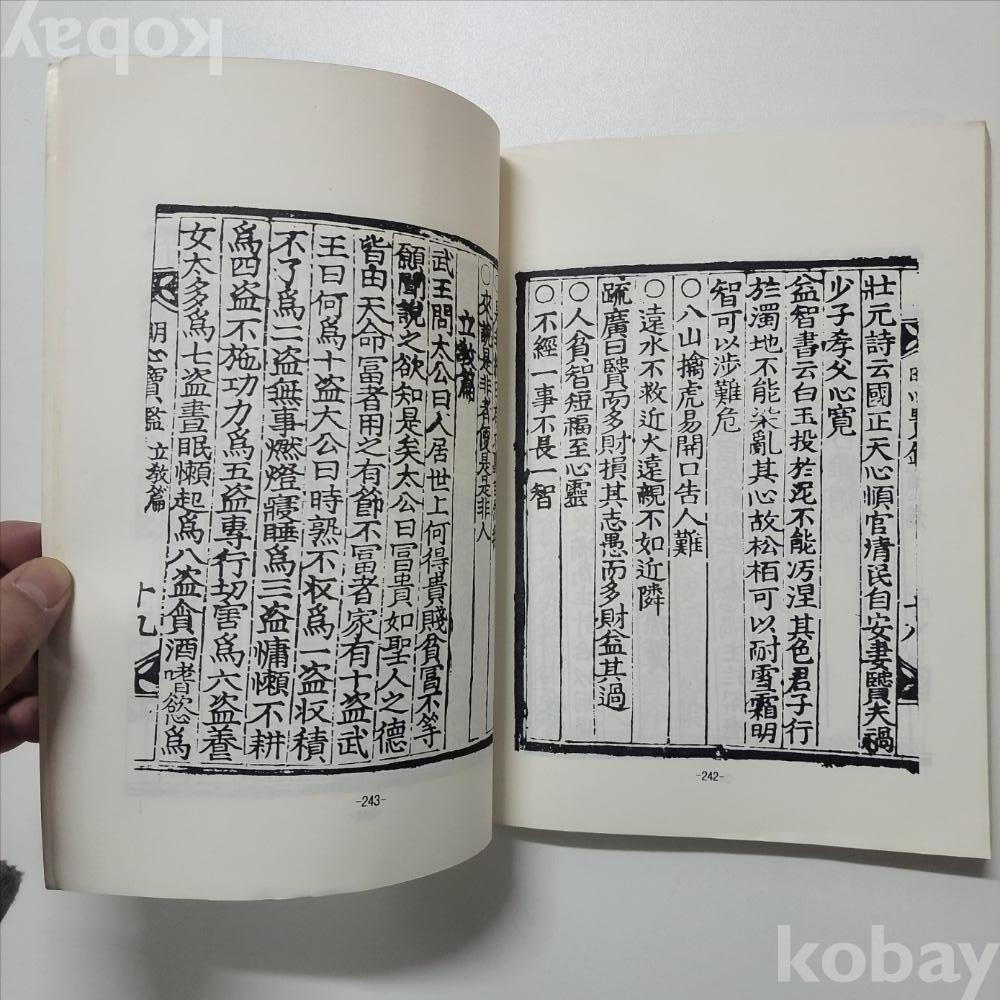 壯元詩云國正天心順官清民自安妻賢夫禍
少子孝父心寬
益智書云白玉投於泥不能汚涅其色君子行
於濁地不能染亂其心故松栢可以耐雪霜明
智可以涉難危
○入山擒虎易開口告人難
○遠水不救近火遠親不如近隣
疏廣曰賢而多財損其志愚而多財益其過
○人貧智短福至心靈
○不經一事不長一智
十八
-242-
○來說是非者便是是非人
立教篇
武王問太公曰人居世上何得貴賤貧冨不等
願聞說之欲知是矣太公曰冨貴如聖人之德
皆由天命冨者用之有節不冨者家有十盗武
王曰何爲十盗太公曰時熟不収爲一盗収積
不了爲二盗無事燃燈寢睡爲三盗慵懶不耕
爲四盗不施功力爲五盗專行切害爲六盗養
女太多爲七盗晝眠懶起爲八盗貪酒嗜慾爲
明心寶鑑 立教篇
十九
-243-
kobay
kobay